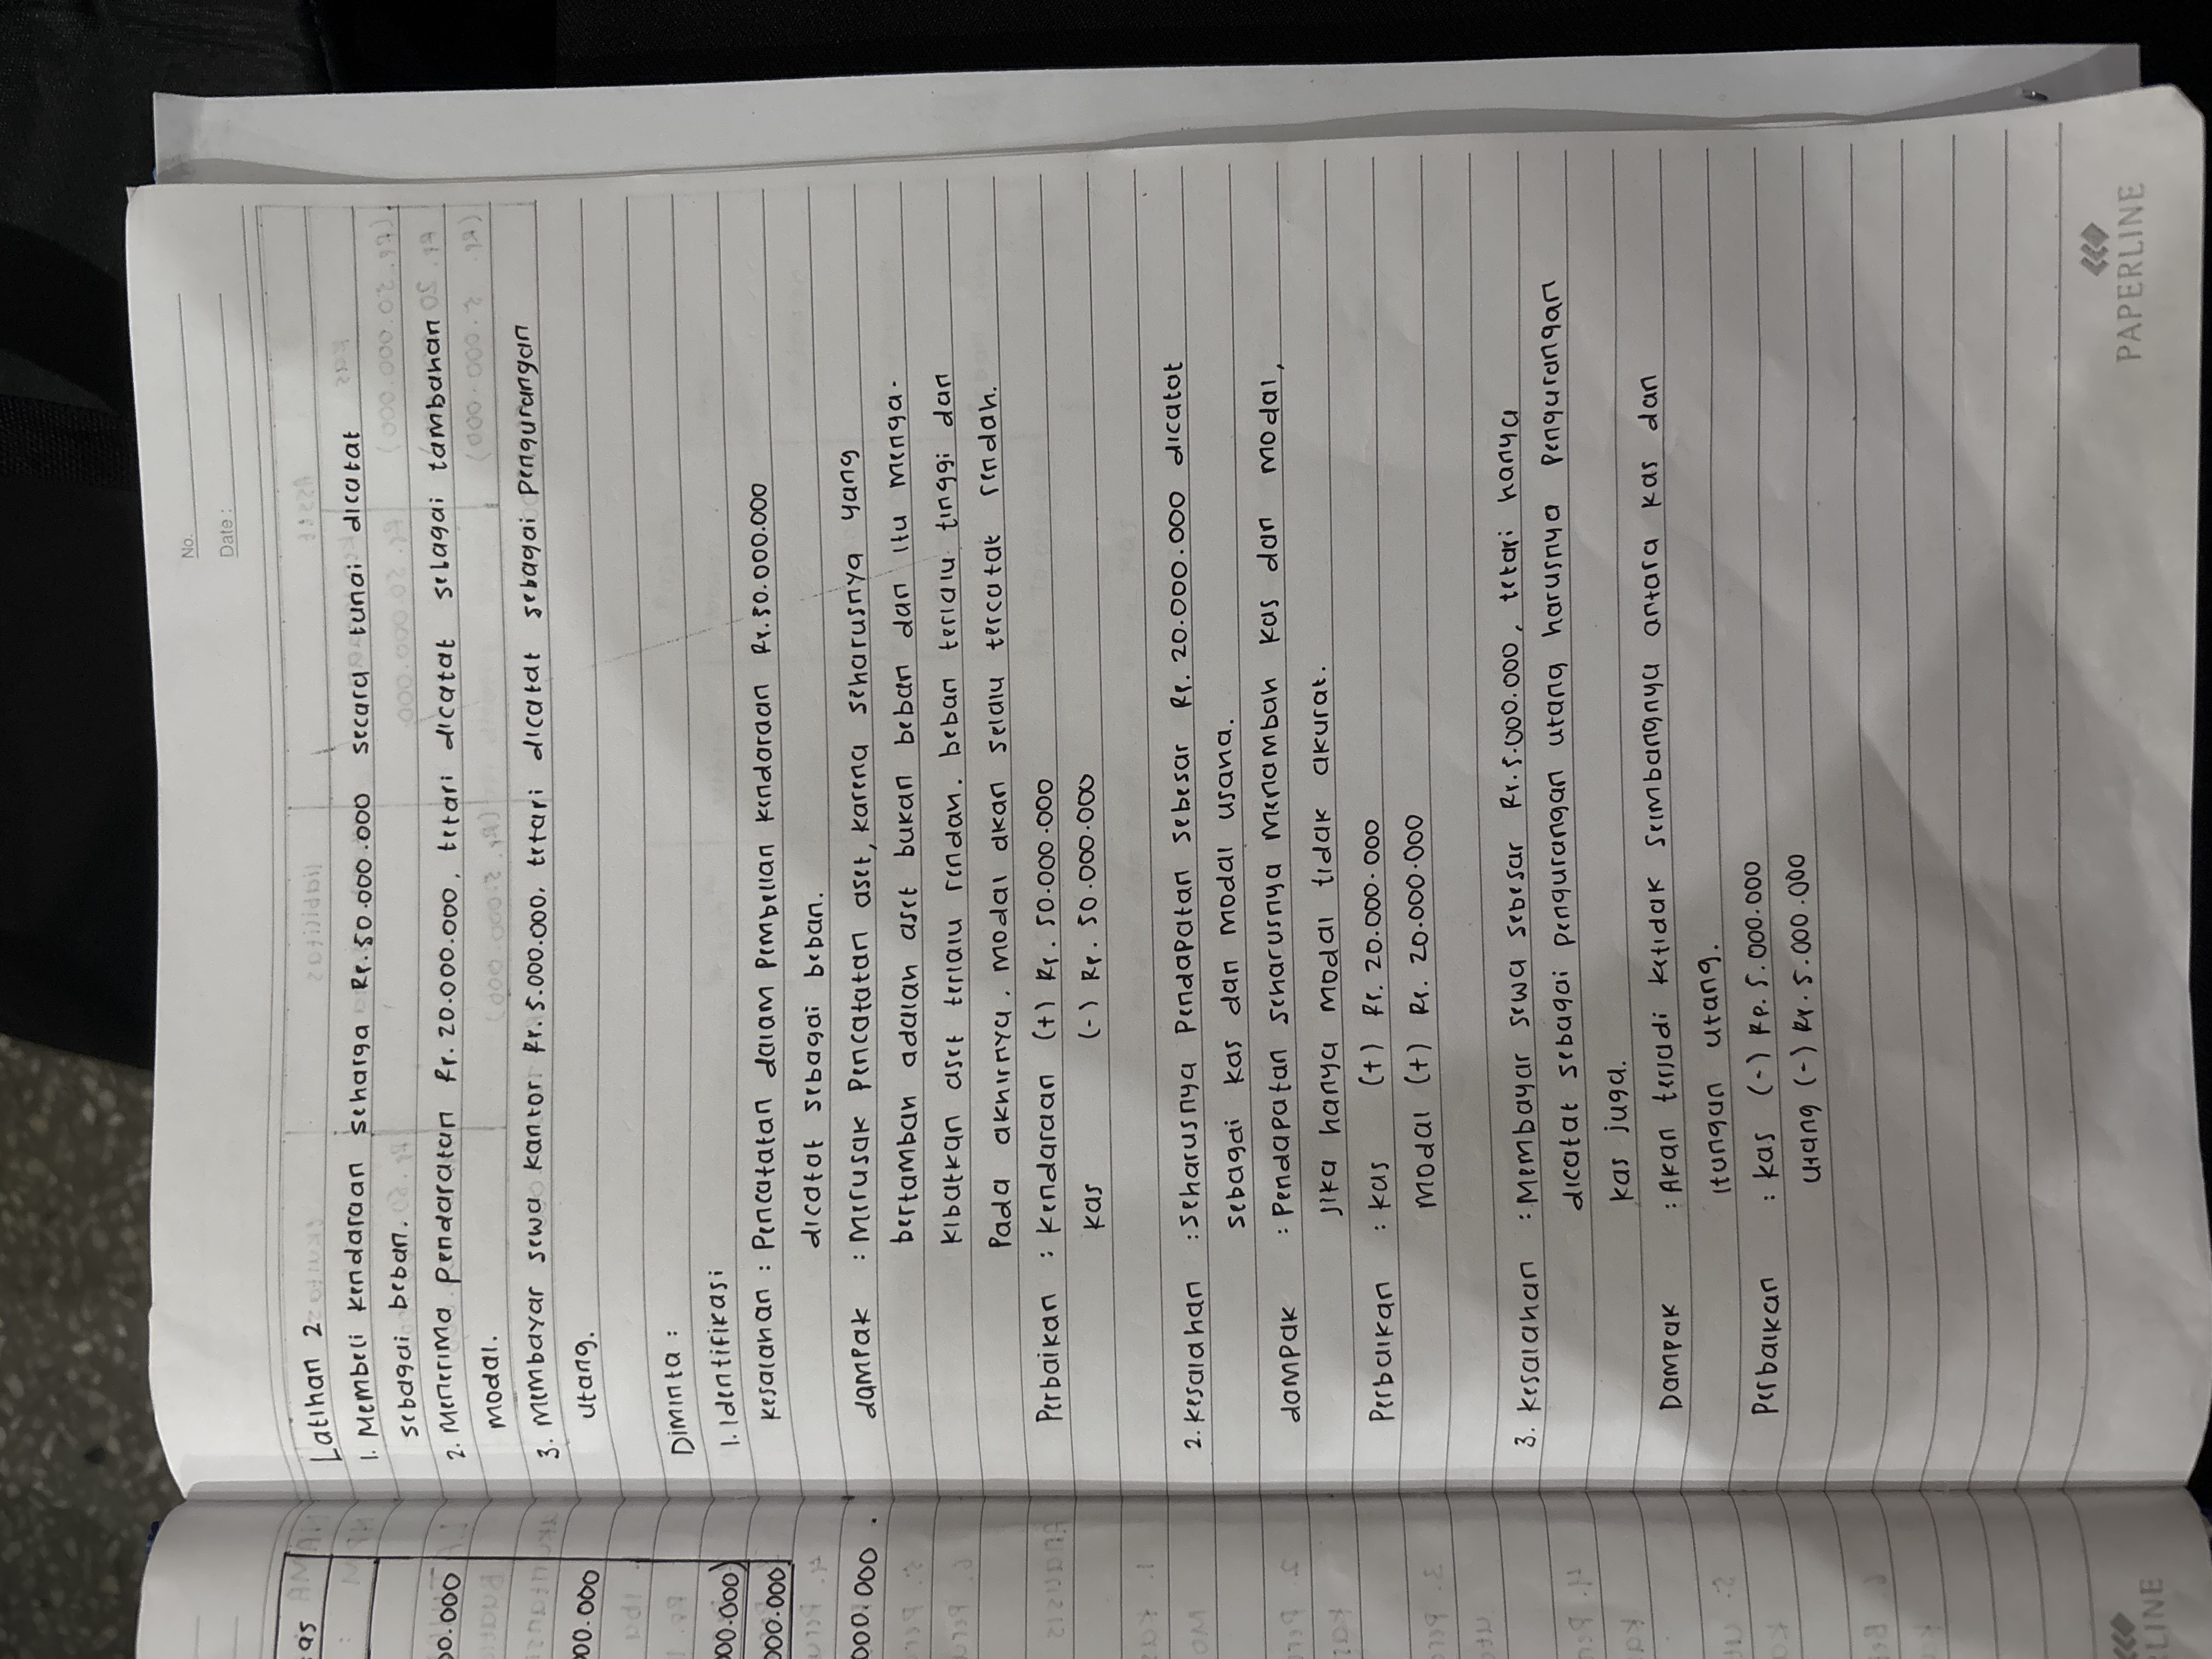 No.
Date :
Latihan 2
1. Membeli kendaraan seharga Rp.50.000.000 secara tunai dicatat
sebagai beban.
2. Menerima pendapatan Rp. 20.000.000, tetapi dicatat sebagai tambahan
modal.
3. Membayar sewa kantor Rp. 5.000.000, tetapi dicatat sebagai pengurangan
utang.
Diminta :
1. Identifikasi
kesalahan : Pencatatan dalam pembelian kendaraan Rp.50.000.000
dicatat sebagai beban.
dampak : Merusak pencatatan aset, karena seharusnya yang
bertambah adalah aset bukan beban dan itu menga-
kibatkan aset terlalu rendah. beban terlalu tinggi dan
Pada akhirnya, modal akan selalu tercatat rendah.
Perbaikan : kendaraan (+) Rp. 50.000.000
kas (-) Rp. 50.000.000
2. kesalahan : Seharusnya Pendapatan sebesar Rp. 20.000.000 dicatat
sebagai kas dan modal usaha.
dampak : Pendapatan seharusnya menambah kas dan modal,
jika hanya modal tidak akurat.
Perbaikan : kas (+) Rp. 20.000.000
Modal (+) Rp. 20.000.000
3. kesalahan : Membayar sewa sebesar Rp.5.000.000, tetapi hanya
dicatat sebagai pengurangan utang harusnya pengurangan
kas juga.
Dampak : Akan terjadi ketidak seimbangnya antara kas dan
itungan utang.
Perbaikan : kas (-) Rp.5.000.000
utang (-) Rp.5.000.000
PAPERLINE